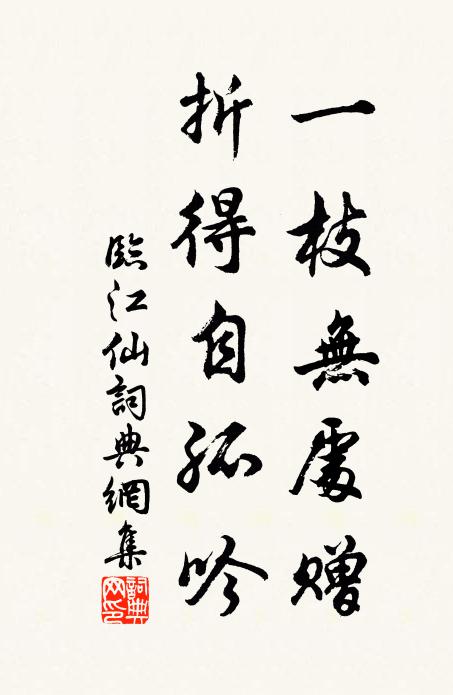 一枝無處贈
折得自孤吟
臨江仙詞典網集
詞典網印